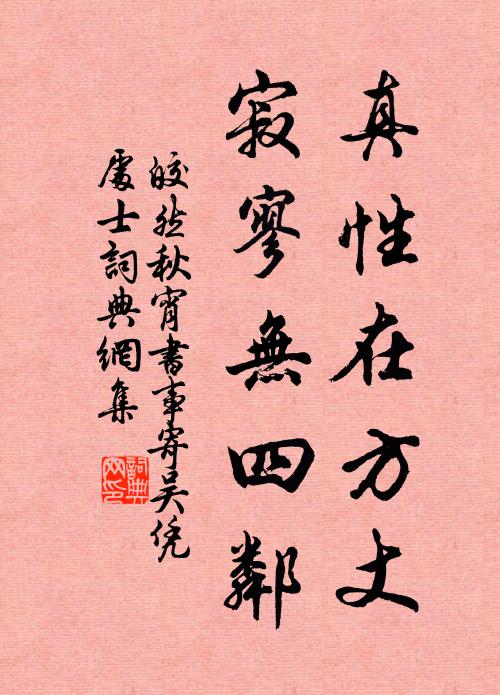 真性在方丈
寂寥無四鄰
皎然秋宵書事寄吴凭
處士詞典網集
詞典网印